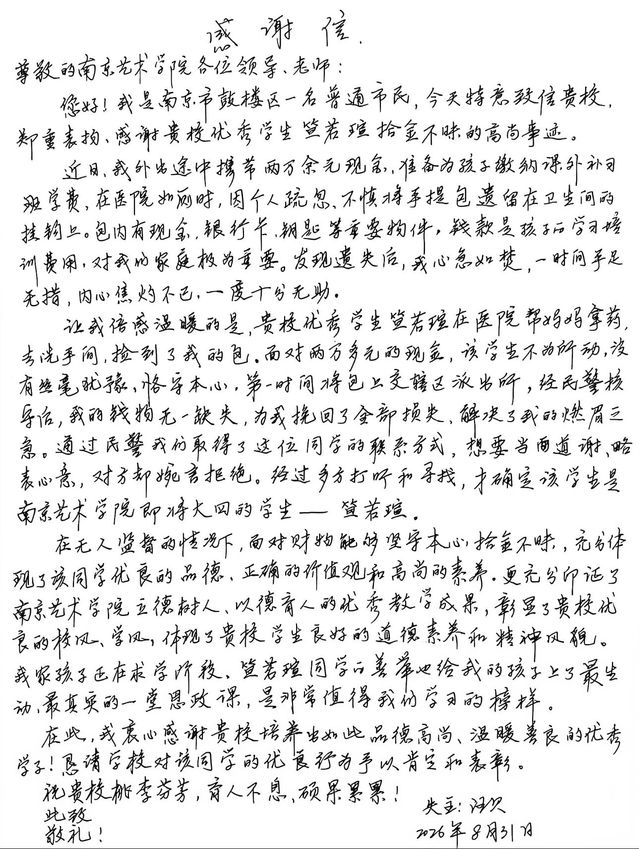 感谢信
尊敬的南京艺术学院各位领导、老师：
您好！我是南京市鼓楼区一名普通市民，今天特意致信贵校，
郑重表扬、感谢贵校优秀学生笪若瑄拾金不昧的高尚事迹。
近日，我外出途中携带两万余元现金，准备为孩子缴纳课外补习
班学费，在医院如厕时，因个人疏忽、不慎将手提包遗留在卫生间的
挂钩上。包内有现金、银行卡、钥匙等重要物件，钱款是孩子的学习培
训费用，对我的家庭极为重要。发现遗失后，我心急如焚，一时间手足
无措，内心焦灼不已，一度十分无助。
让我倍感温暖的是，贵校优秀学生笪若瑄在医院帮妈妈拿药，
去洗手间，捡到了我的包。面对两万多元的现金，该学生不为所动，没
有丝毫犹豫，恪守本心，第一时间将包上交辖区派出所，经民警核
导后，我的钱物无一缺失，为我挽回了全部损失、解决了我的燃眉之
急。通过民警我们取得了这位同学的联系方式，想要当面道谢、略
表心意，对方却婉言拒绝。经过多方打听和寻找，才确定该学生是
南京艺术学院即将大四的学生——笪若瑄。
在无人监督的情况下，面对财物能够坚守本心拾金不昧，充分体
现了该同学优良的品德、正确的价值观和高尚的素养。更充分印证了
南京艺术学院立德树人、以德育人的优秀教学成果，彰显了贵校优
良的校风、学风，体现了贵校学生良好的道德素养和精神风貌。
我家孩子正在求学阶段、笪若瑄同学的善举也给我的孩子上了最生
动、最真实的一堂思政课，是非常值得我们学习的榜样。
在此，我衷心感谢贵校培养出如此品德高尚、温暖善良的优秀
学子！恳请学校对该同学的优良行为予以肯定和表彰。
祝贵校桃李芬芳，育人不息、硕果累累！
此致
敬礼！
失主：汪
2026年8月31日